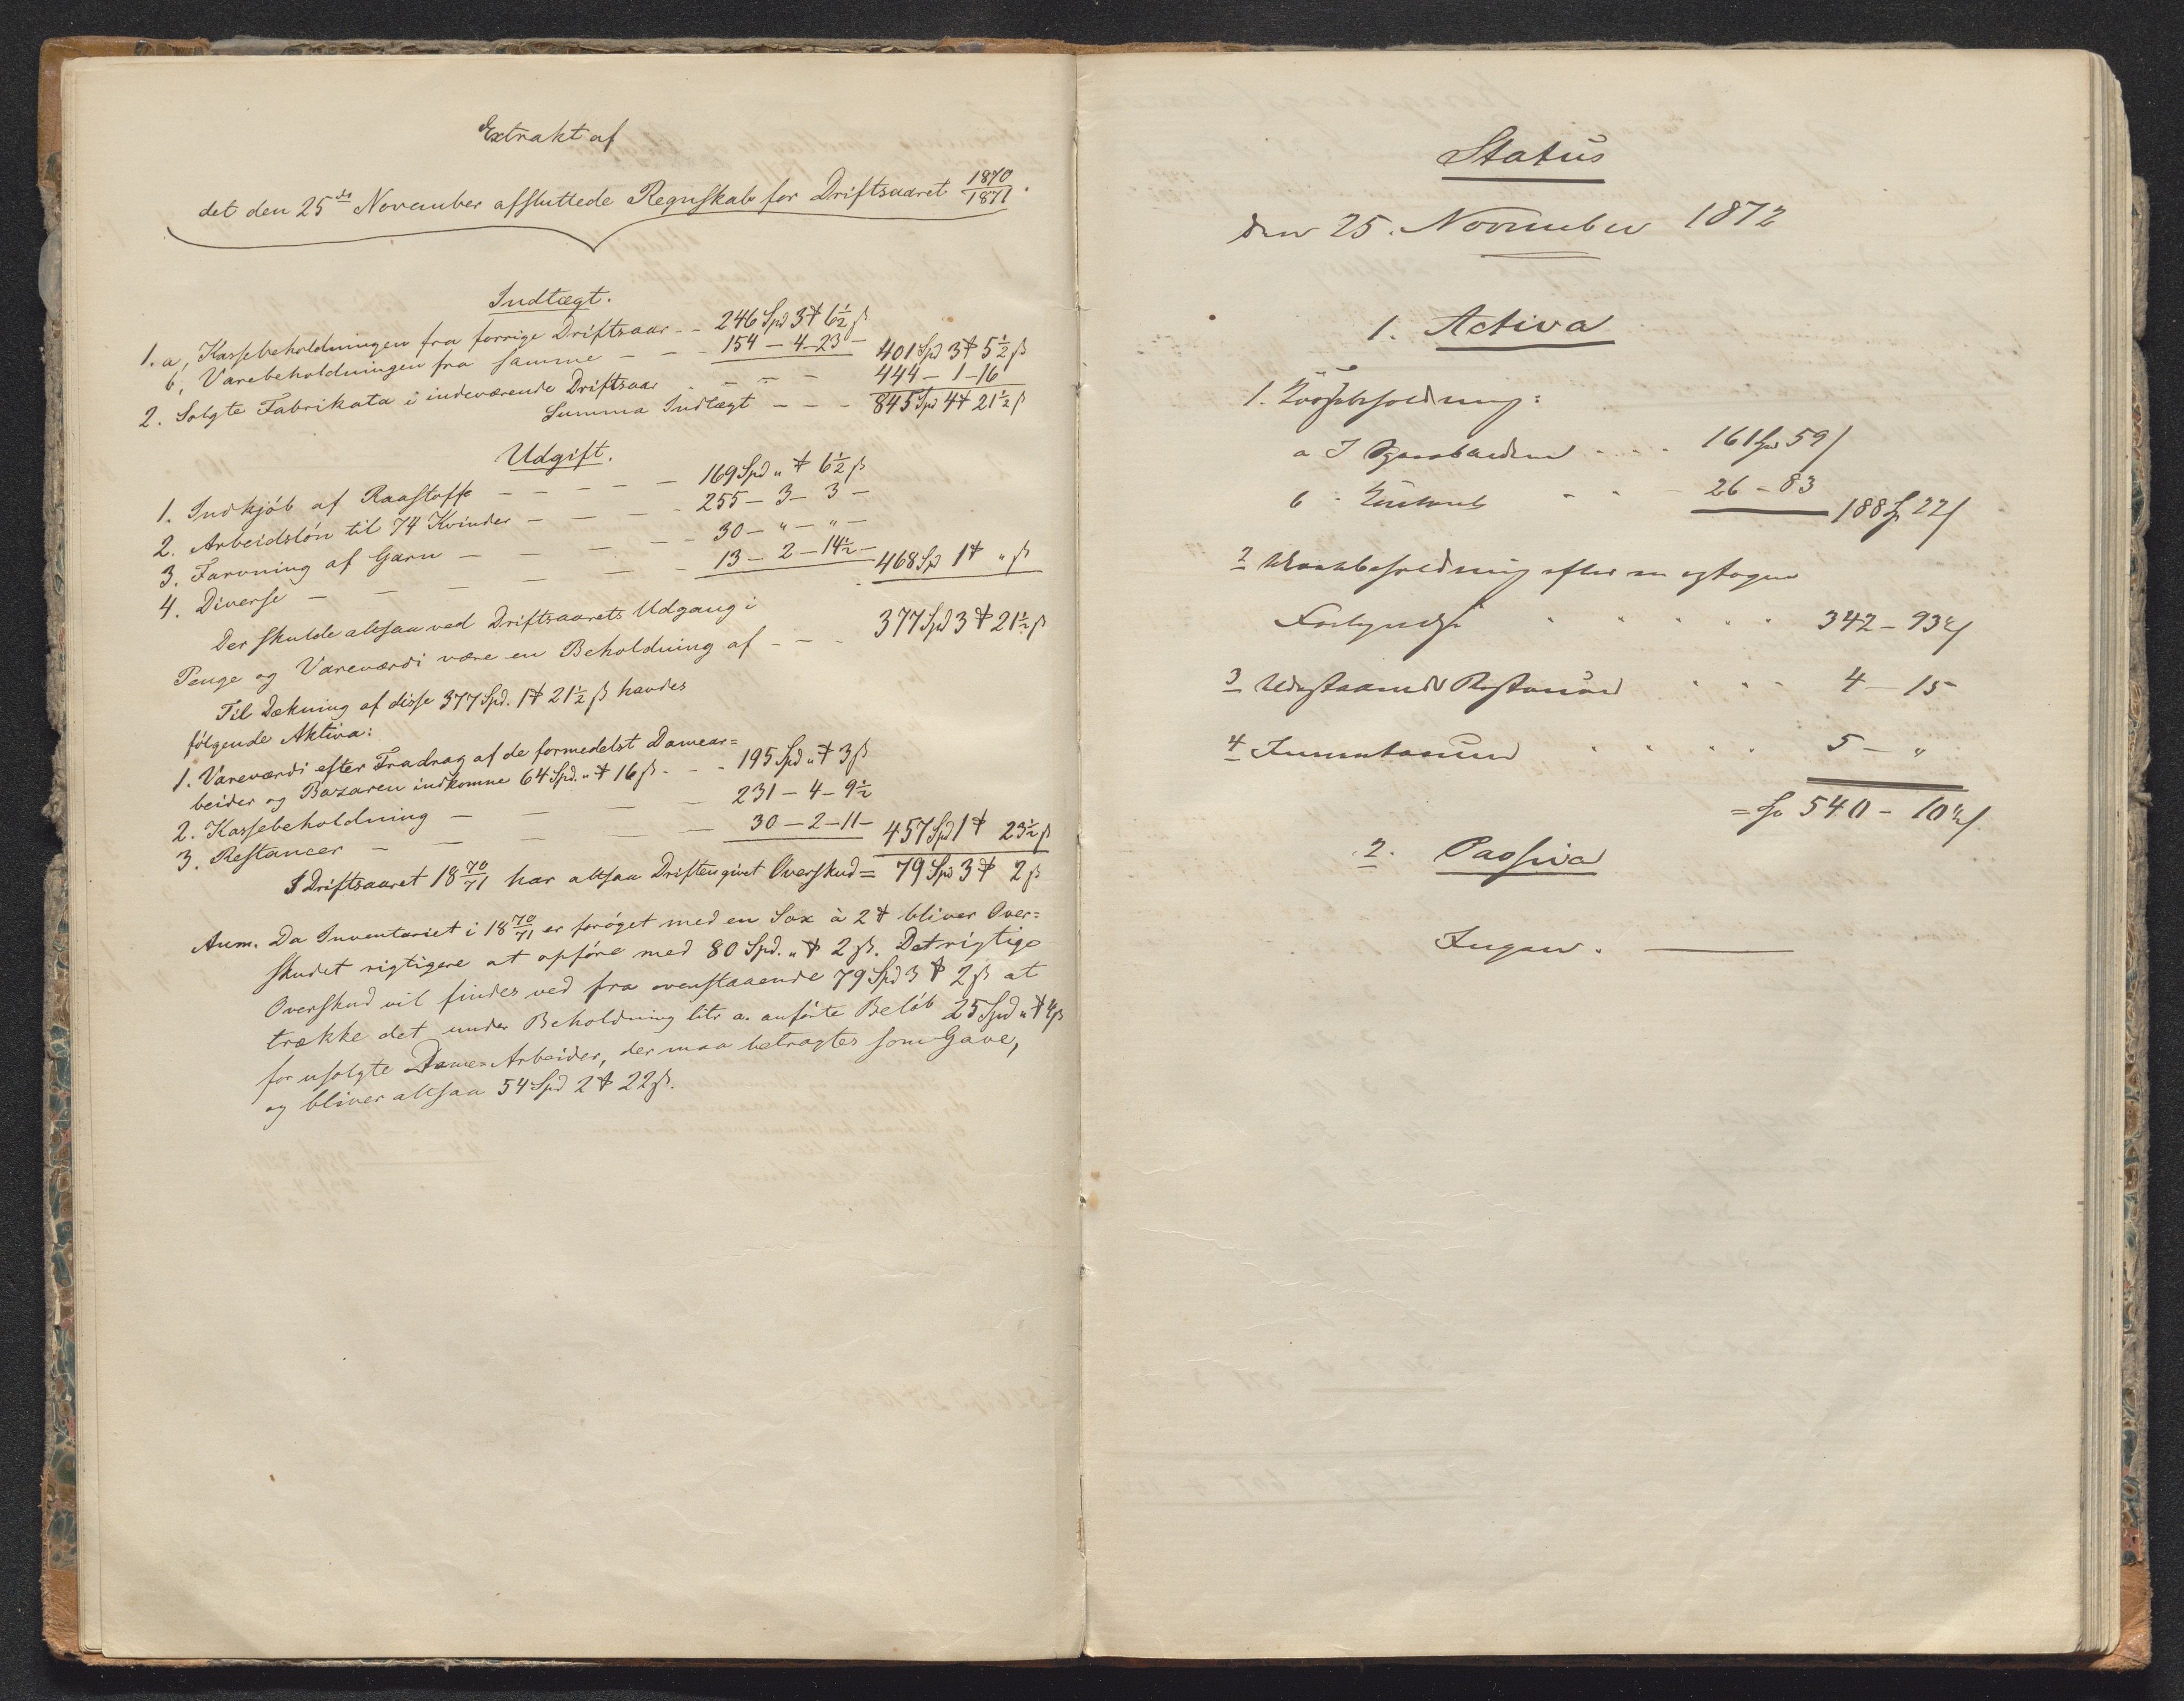 Extrakt af
det den 25de November afsluttede Regnskab for Driftsaaret 1870/1871.
Indtægt.
1. a, Kassebeholdningen fra forrige Driftsaar - - 246 Spd 3 ⚹ 6½ ß
b, Varebeholdningen fra samme - - - 154 - 4 - 23 - 401 Spd 3 ⚹ 5½ ß
2. Solgte Fabrikata i indeværende Driftsaar - - - 444 - 1 - 16
Summa Indtægt - - - 845 Spd 4 ⚹ 21½ ß
Udgift.
1. Indkjöb af Raastoffe - - - - - 169 Spd „ ⚹ 6½ ß
2. Arbeidslön til 74 Kvinder - - - - 255 - 3 - 3 -
3. Farvning af Garn - - - - - 30 - „ - „ -
4. Diverse - - - - - - 13 - 2 - 14½ - 468 Sp 1 ⚹ „ ß
Der skulde altsaa ved Driftsaarets Udgang i
Penge og Vareværdi være en Beholdning af - - - 377 Spd 3 ⚹ 21½ ß
Til Dækning af disse 377 Spd. 1 ⚹ 21½ ß havdes
följgende Aktiva:
1. Vareværdi efter Fradrag af de formedelst Damear=
beider og Bazaren indkomne 64 Spd. „ ⚹ 16 ß. - - 195 Spd „ ⚹ 3 ß
2. Kassebeholdning - - - - 231 - 4 - 9½
3. Restancer - - - - - 30 - 2 - 11 - 457 Spd 1 ⚹ 23½ ß
I Driftsaaret 18 70/71 har altsaa Driften givet Overskud = 79 Spd 3 ⚹ 2 ß
Anm. Da Inventariet i 18 70/71 er foröget med en Sax à 2 ⚹ bliver Over=
skudet rigtigere at opföre med 80 Spd. „ ⚹ 2 ß. Det rigtige
Overskud vil findes ved fra ovenstaaende 79 Spd 3 ⚹ 2 ß at
trække det under Beholdning litr a. anförte Belöb 25 Spd „ ⚹ 4 ß
for usolgte Dame-Arbeider, der maa betragtes som Gave,
og bliver altsaa 54 Spd 2 ⚹ 22 ß.
Status
den 25. November 1872
1. Activa
1. Kassebeholdning:
a I Sparebanken - - - - 161 Spd 59 ß
b - Kontant - - - 26 - 83 188 Sp 22 ß
2 Varebeholdning efter en optagen
Fortegnelse - - - - - 342 - 93½ ß
3 Udestaaende Restancer - - - 4 - 15
4 Inventarium - - - - 5 - „
= Sp 540 - 10½ ß.
2. Passiva
Ingen.